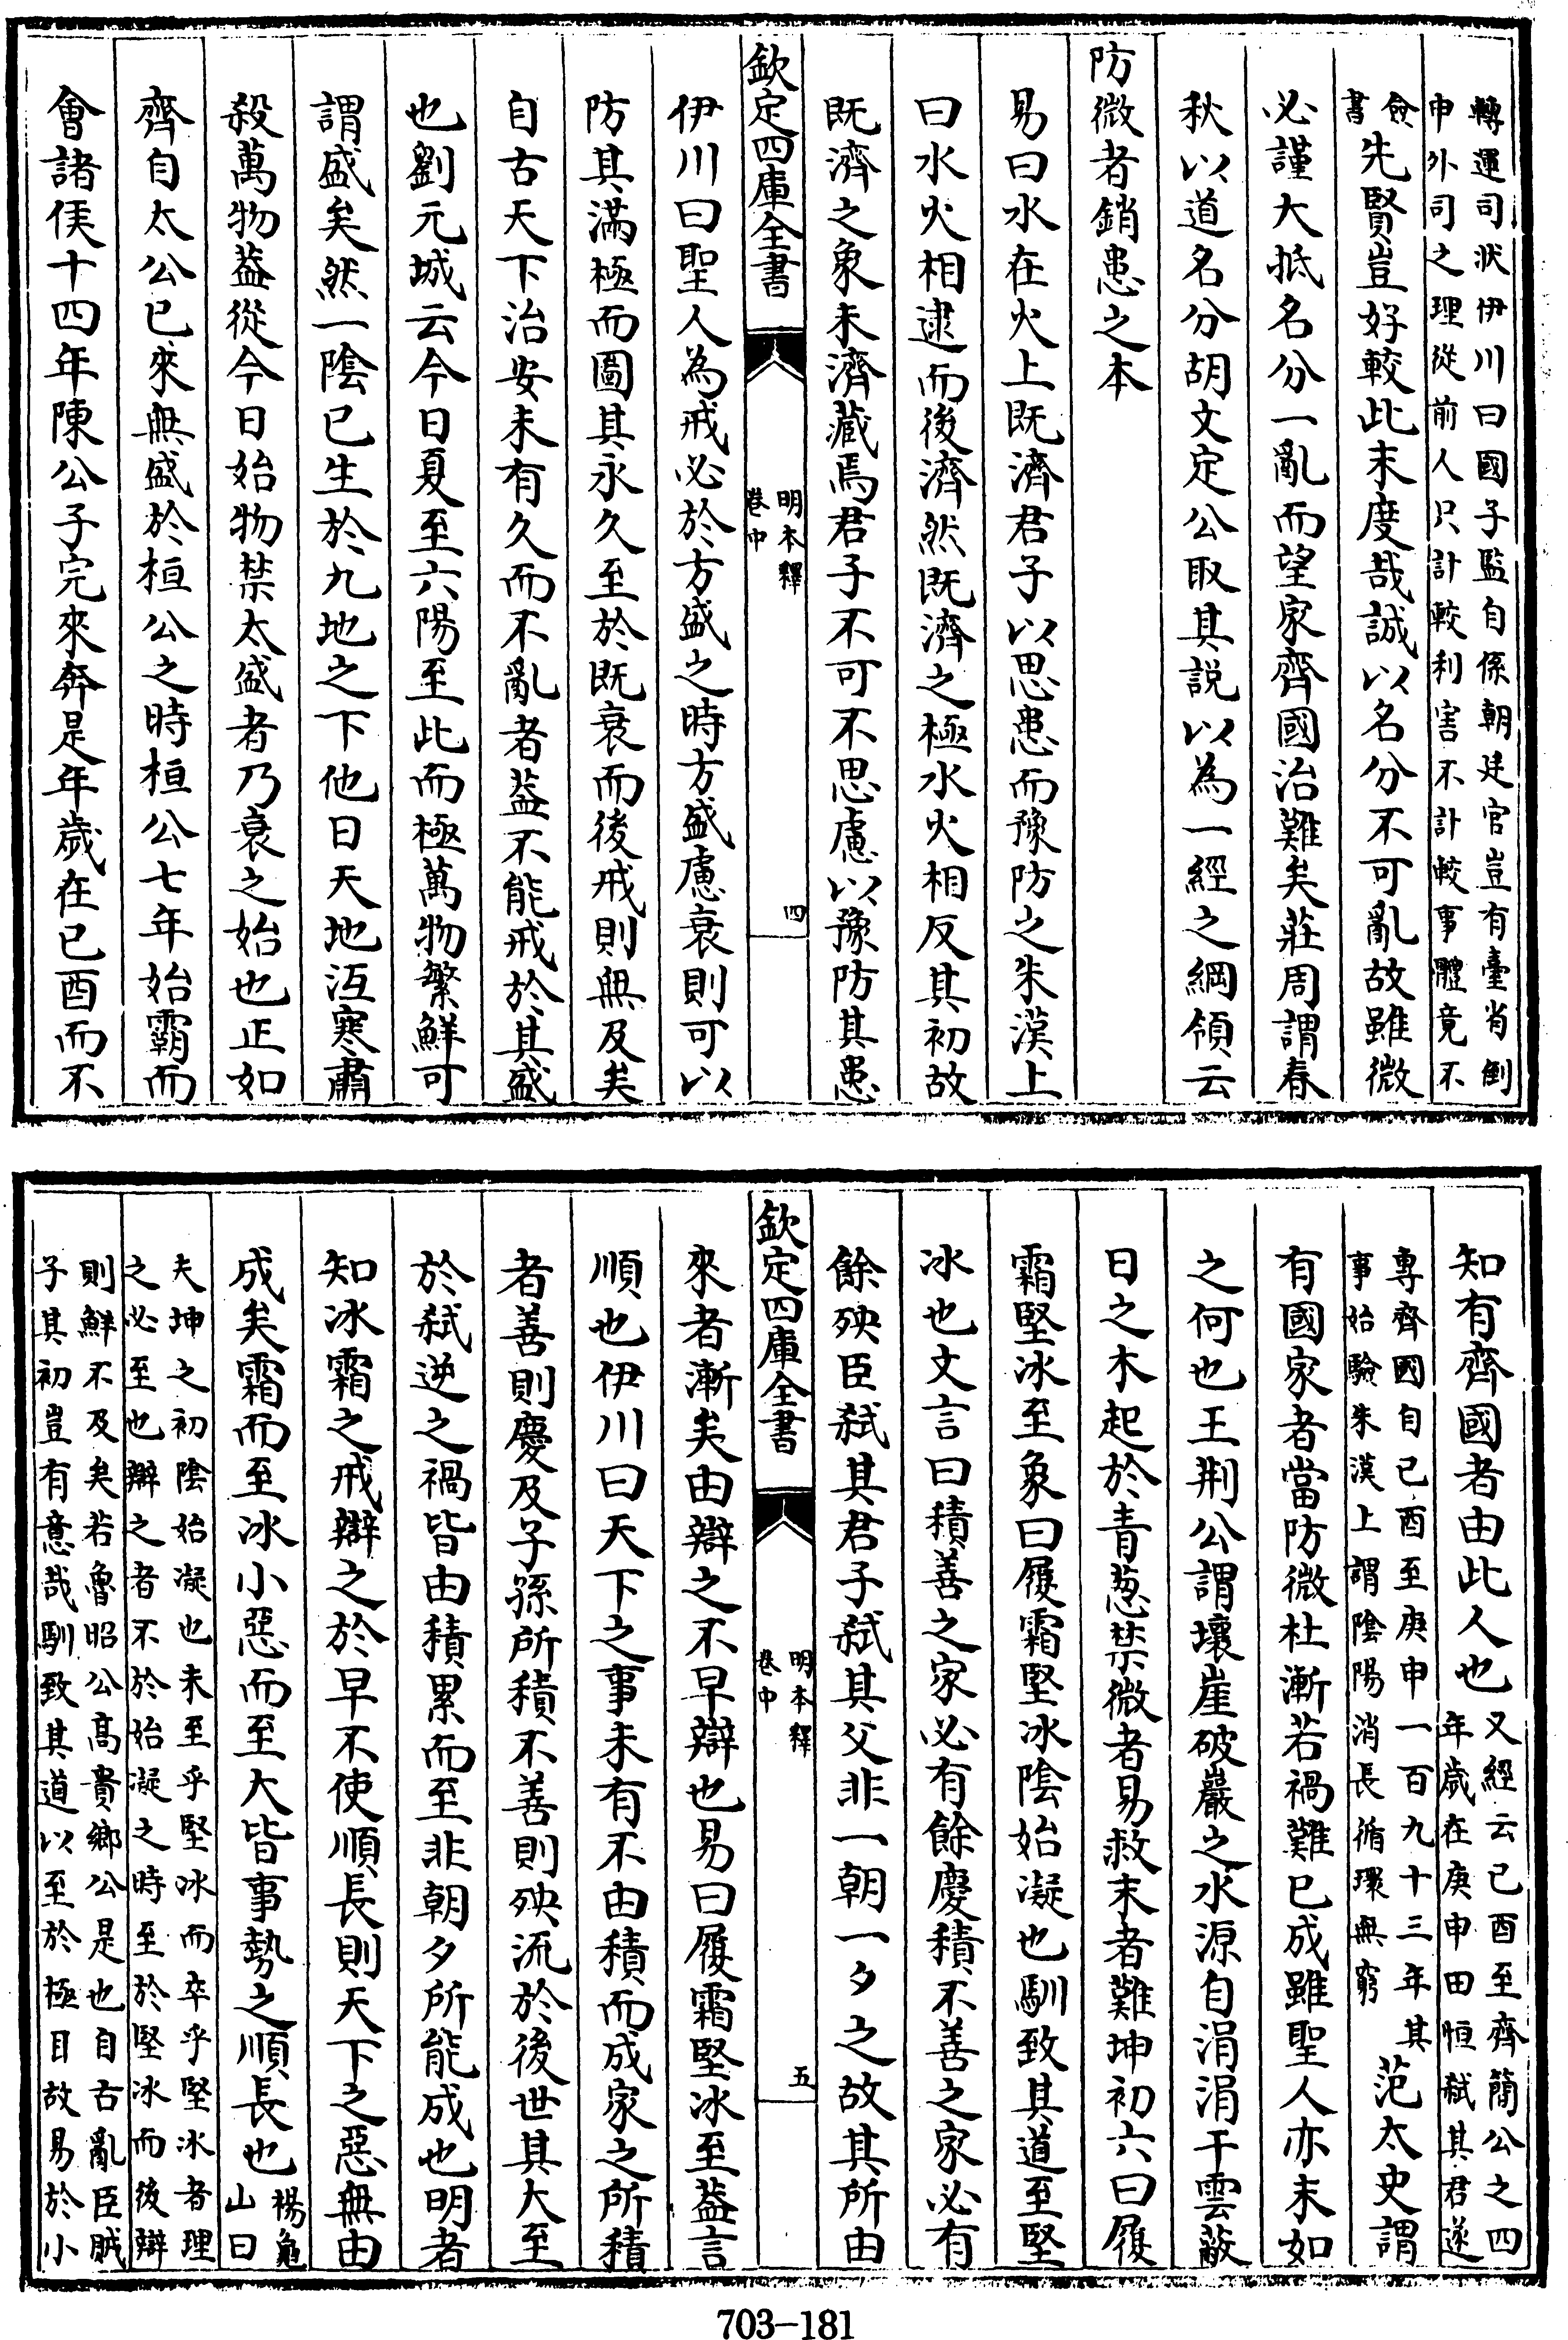 轉運司狀伊川曰國子監自係朝廷官豈有臺省倒
申外司之理從前人只計較利害不計較事體竟不
僉
書
先賢豈好較此末度哉誠以名分不可亂故雖微
必謹大抵名分一亂而望家齊國治難矣莊周謂春
秋以道名分胡文定公取其説以為一經之綱領云
防微者銷患之本
易曰水在火上既濟君子以思患而豫防之朱漢上
曰水火相逮而後濟然既濟之極水火相反其初故
既濟之象未濟藏焉君子不可不思慮以豫防其患
欽定四庫全書
明本釋
卷中
四
伊川曰聖人為戒必於方盛之時方盛慮衰則可以
防其滿極而圖其永久至於既衰而後戒則無及矣
自古天下治安未有久而不亂者葢不能戒於其盛
也劉元城云今日夏至六陽至此而極萬物繁鮮可
謂盛矣然一陰已生於九地之下他日天地沍寒肅
殺萬物葢從今日始物禁太盛者乃衰之始也正如
齊自太公已來無盛於桓公之時桓公七年始霸而
會諸侯十四年陳公子完來奔是年歲在己酉而不
知有齊國者由此人也
又經云己酉至齊簡公之四
年歲在庚申田恒弑其君遂
專齊國自己酉至庚申一百九十三年其
事始驗朱漢上謂陰陽消長循環無窮
范太史謂
有國家者當防微杜漸若禍難已成雖聖人亦末如
之何也王荆公謂壞崖破巖之水源自涓涓干雲蔽
日之木起於青葱禁微者易救末者難坤初六曰履
霜堅冰至象曰履霜堅冰陰始凝也馴致其道至堅
冰也文言曰積善之家必有餘慶積不善之家必有
餘殃臣弑其君子弑其父非一朝一夕之故其所由
欽定四庫全書
明本釋
卷中
五
來者漸矣由辯之不早辯也易曰履霜堅冰至葢言
順也伊川曰天下之事未有不由積而成家之所積
者善則慶及子孫所積不善則殃流於後世其大至
於弑逆之禍皆由積累而至非朝夕所能成也明者
知冰霜之戒辯之於早不使順長則天下之惡無由
成矣霜而至冰小惡而至大皆事勢之順長也
楊龜
山曰
夫坤之初陰始凝也未至乎堅冰而卒乎堅冰者理
之必至也辯之者不於始凝之時至於堅冰而後辯
則鮮不及矣若魯昭公高貴鄉公是也自古亂臣賊
子其初豈有意哉馴致其道以至於極目故易於小
703-181